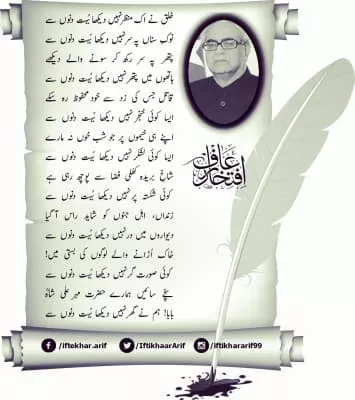 خلق نے اک منظر نہیں دیکھا بہت دنوں سے
نوک سناں پہ سر نہیں دیکھا بہت دنوں سے
پتھر پہ سر رکھ کر سونے والے دیکھے
ہاتھوں میں پتھر نہیں دیکھا بہت دنوں سے
قاتل جس کی زد سے خود محفوظ رہ سکے
ایسا کوئی خنجر نہیں دیکھا بہت دنوں سے
اپنے ہی خیموں پر جو شب خوں نہ مارے
ایسا کوئی لشکر نہیں دیکھا بہت دنوں سے
شاخ بریدہ کھلی فضا سے پوچھ رہی ہے
کوئی شکستہ پر نہیں دیکھا بہت دنوں سے
زنداں، اہل جنوں کو شاید راس آ گیا
دیواروں میں در نہیں دیکھا بہت دنوں سے
خاک اُڑانے والے لوگوں کی بستی میں!
کوئی صورت گر نہیں دیکھا بہت دنوں سے
سائیں ہمارے حضرت مہر علی شاہؒ
بابا! ہم نے گھر نہیں دیکھا بہت دنوں سے
افتخار عارف
/iftekhar.arif /IftikhaarArif /iftikhararif99